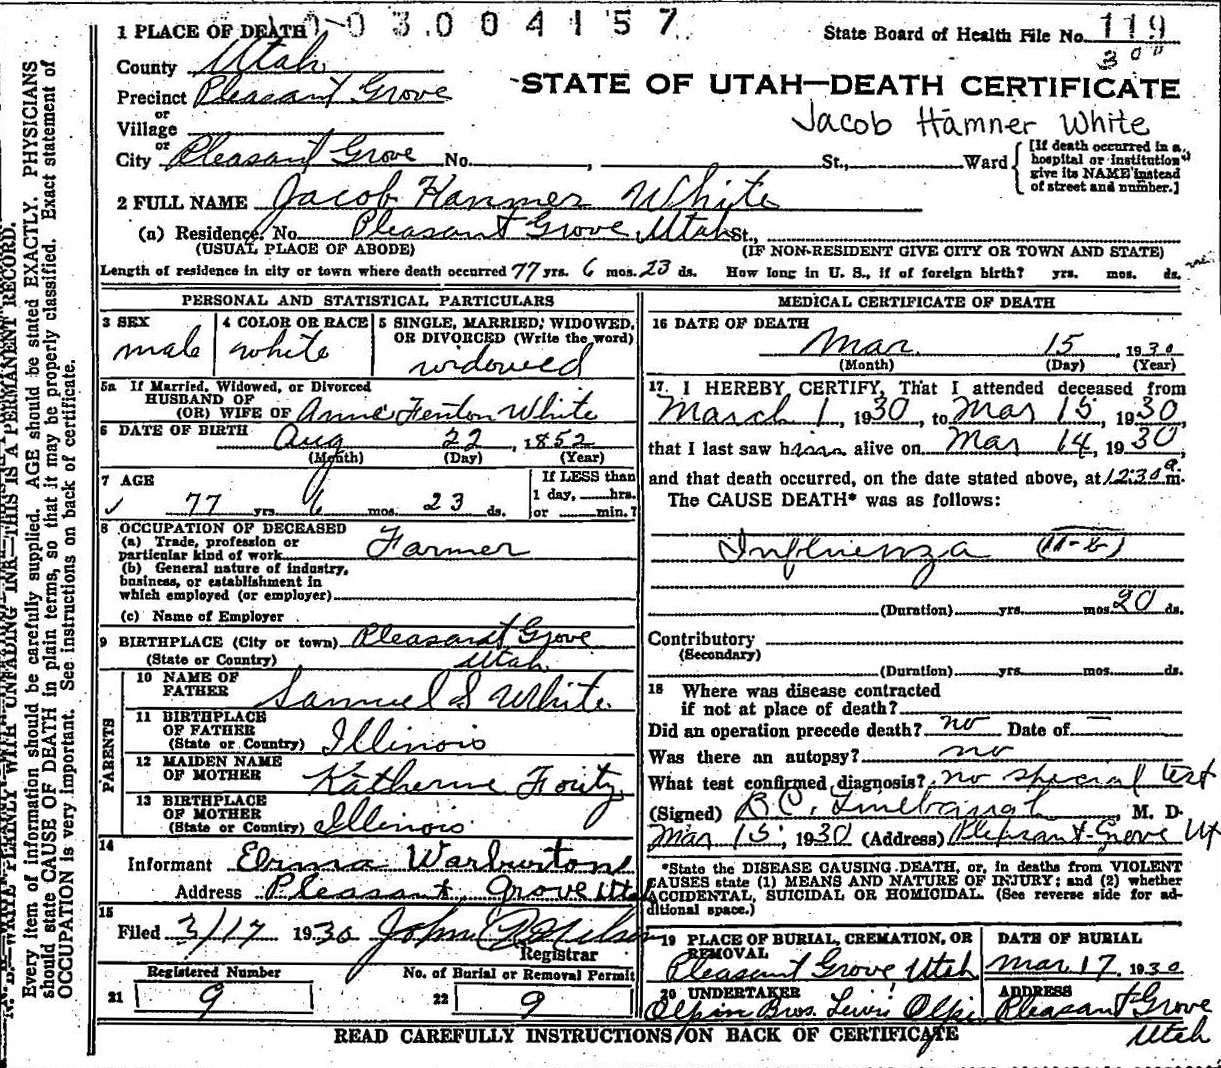 003004157
1 PLACE OF DEATH
State Board of Health File No. 119
30
County Utah
STATE OF UTAH—DEATH CERTIFICATE
Precinct Pleasant Grove
or
Village
Jacob Hamner White
or
City Pleasant Grove No. , St., Ward
[If death occurred in a hospital or institution give its NAME instead of street and number.]
2 FULL NAME Jacob Hammer White
(a) Residence. No. Pleasant Grove, Utah St.,
(USUAL PLACE OF ABODE) (IF NON-RESIDENT GIVE CITY OR TOWN AND STATE)
Length of residence in city or town where death occurred 77 yrs. 6 mos. 23 ds. How long in U. S., if of foreign birth? yrs. mos. ds.
PERSONAL AND STATISTICAL PARTICULARS
3 SEX
male
4 COLOR OR RACE
white
5 SINGLE, MARRIED, WIDOWED,
OR DIVORCED (Write the word)
widowed
5a If Married, Widowed, or Divorced
HUSBAND OF
(OR) WIFE OF Anne Fenton White
6 DATE OF BIRTH Aug 22, 1852
(Month) (Day) (Year)
7 AGE
77 yrs. 6 mos. 23 ds.
If LESS than
1 day, hrs.
or min.?
8 OCCUPATION OF DECEASED
(a) Trade, profession or
particular kind of work Farmer
(b) General nature of industry,
business, or establishment in
which employed (or employer)
(c) Name of Employer
9 BIRTHPLACE (City or town) Pleasant Grove
(State or Country) Utah
PARENTS
10 NAME OF
FATHER Samuel S White
11 BIRTHPLACE
OF FATHER
(State or Country) Illinois
12 MAIDEN NAME
OF MOTHER Katherine Foutz
13 BIRTHPLACE
OF MOTHER
(State or Country) Illinois
14
Informant Elrma Warburtons
Address Pleasant Grove Utah
15
Filed 3/17 1930 John
Registrar
Registered Number
21 9
No. of Burial or Removal Permit
22 9
MEDICAL CERTIFICATE OF DEATH
16 DATE OF DEATH
Mar. 15, 1930
(Month) (Day) (Year)
17 I HEREBY CERTIFY, That I attended deceased from
March 1, 1930, to Mar 15, 1930,
that I last saw him alive on Mar 14, 1930,
and that death occurred, on the date stated above, at 12:30 a m.
The CAUSE DEATH* was as follows:
Influenza (11-b)
(Duration) yrs. mos. 20 ds.
Contributory
(Secondary)
(Duration) yrs. mos. ds.
18 Where was disease contracted
if not at place of death?
Did an operation precede death? no Date of —
Was there an autopsy? no
What test confirmed diagnosis? no special test
(Signed) B.C. , M. D.
Mar 15, 1930 (Address) Pleasant Grove Ut
*State the DISEASE CAUSING DEATH, or, in deaths from VIOLENT
CAUSES state (1) MEANS AND NATURE OF INJURY; and (2) whether
ACCIDENTAL, SUICIDAL OR HOMICIDAL. (See reverse side for ad-
ditional space.)
19 PLACE OF BURIAL, CREMATION, OR
REMOVAL
Pleasant Grove, Utah
DATE OF BURIAL
Mar. 17 1930
20 UNDERTAKER
Olpin Bros. Lewis Olpin
ADDRESS
Pleasant Grove
Utah
READ CAREFULLY INSTRUCTIONS ON BACK OF CERTIFICATE
N. B.—WRITE PLAINLY WITH UNFADING INK—THIS IS A PERMANENT RECORD.
Every item of information should be carefully supplied. AGE should be stated EXACTLY. PHYSICIANS
should state CAUSE OF DEATH in plain terms, so that it may be properly classified. Exact statement of
OCCUPATION is very important. See instructions on back of certificate.